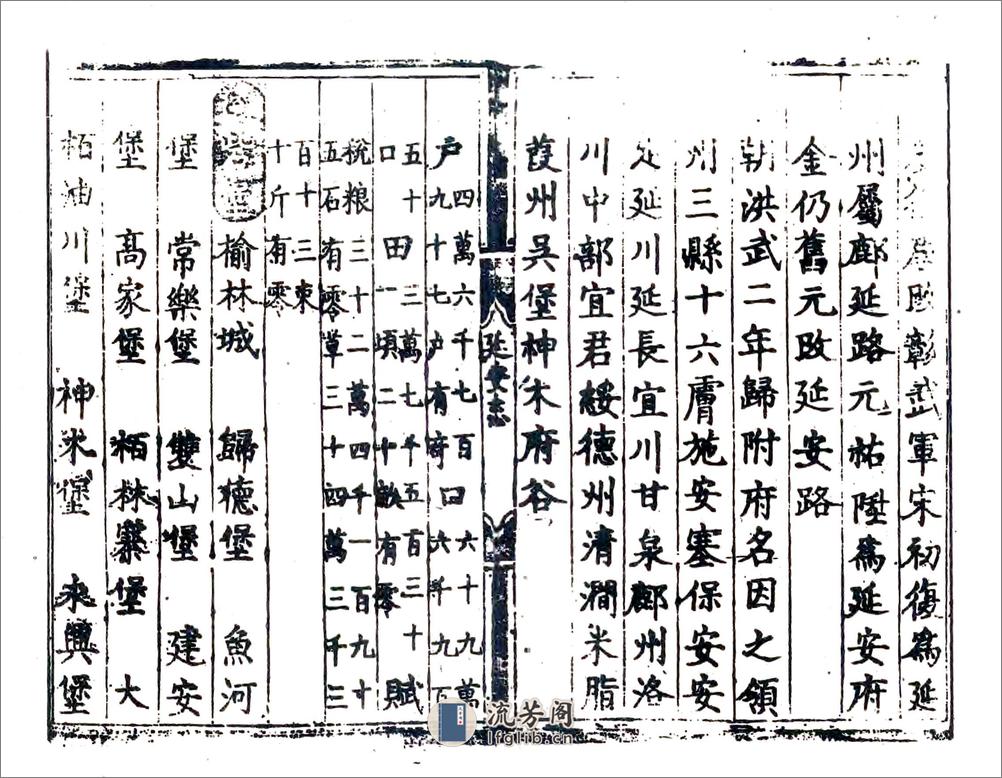 彰武軍宋初復爲延
州屬鄜延路元祐陞爲延安府
金仍舊元改延安路
朝洪武二年歸附府名因之領
州三縣十六膚施安塞保安安
定延川延長宜川甘泉鄜州洛
川中部宜君綏德州清澗米脂
葭州吳堡神木府谷
延安志
四萬六千七百口六十九萬
戶九十七户有奇六千九百
五十三萬七千五百三十賦
口田一頃二十畝有零
稅粮三十二萬四千一百九十
五石有零草三十四萬三千三
百十三束
十斤有零
榆林城 歸德堡 魚河
堡 常樂堡 雙山堡 建安
堡 高家堡 栢林寨堡 大
栢油川堡 神木堡 永興堡
流芳阁
lfglib.cn